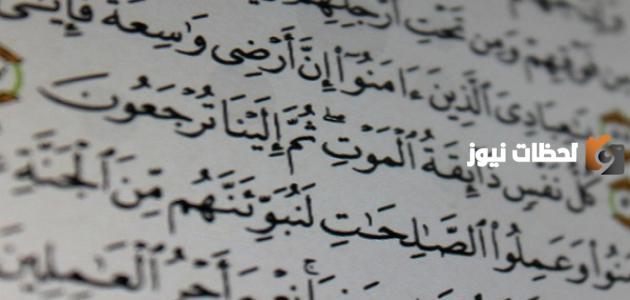 فَوْقِهِمْ وَمِن تَحْتِ أَرْجُلِهِمْ
يَٰعِبَادِىَ ٱلَّذِينَ ءَامَنُوٓا۟ إِنَّ أَرْضِى وَٰسِعَةٌ فَإِيَّٰىَ
كُلُّ نَفْسٍ ذَآئِقَةُ ٱلْمَوْتِ ۖ ثُمَّ إِلَيْنَا تُرْجَعُونَ
لحظات نيوز
وَعَمِلُوا۟ ٱلصَّٰلِحَٰتِ لَنُبَوِّئَنَّهُم مِّنَ ٱلْجَنَّةِ
نِعْمَ أَجْرُ ٱلْعَٰمِلِينَ